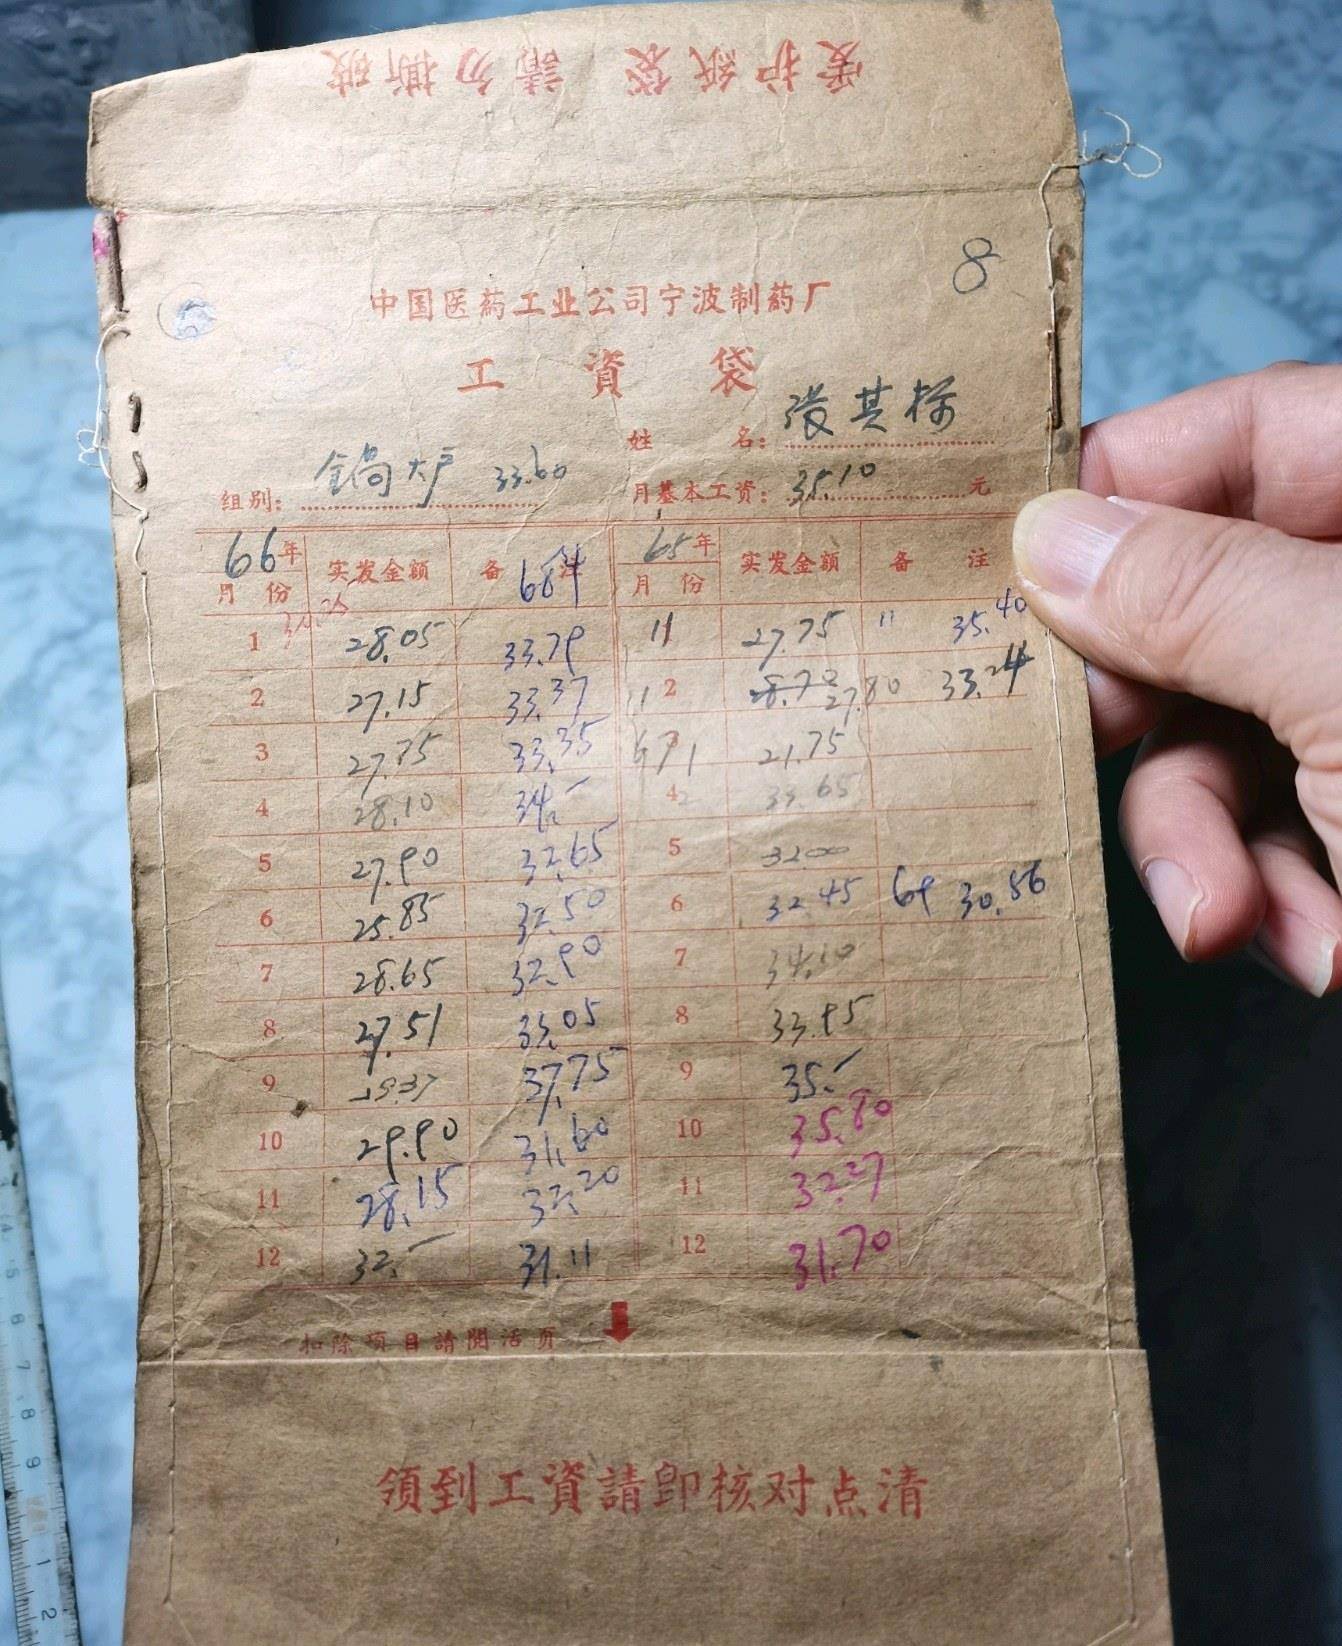 爱护紙袋 請勿撕破
8
中国医药工业公司宁波制药厂
工資袋
姓名: 張其標
组别: 鍋炉 33.60 月基本工资: 35.10 元
66年 月份 实发金额 备注 68年 65年 月份 实发金额 备注
1 28.05 33.79 11 27.75 11 35.40
2 27.15 33.37 11 2 28.70 27.80 33.24
3 27.75 33.35 67 1 21.75
4 28.10 34.- 4 2 33.65
5 27.90 32.65 5 32.00
6 25.85 32.50 6 32.45 69 30.56
7 28.65 32.90 7 34.10
8 27.51 33.05 8 33.95
9 37.75 9 35.-
10 29.90 31.60 10 35.80
11 28.15 32.20 11 32.27
12 32.- 31.11 12 31.70
扣除项目請閲活页
領到工資請即核对点清